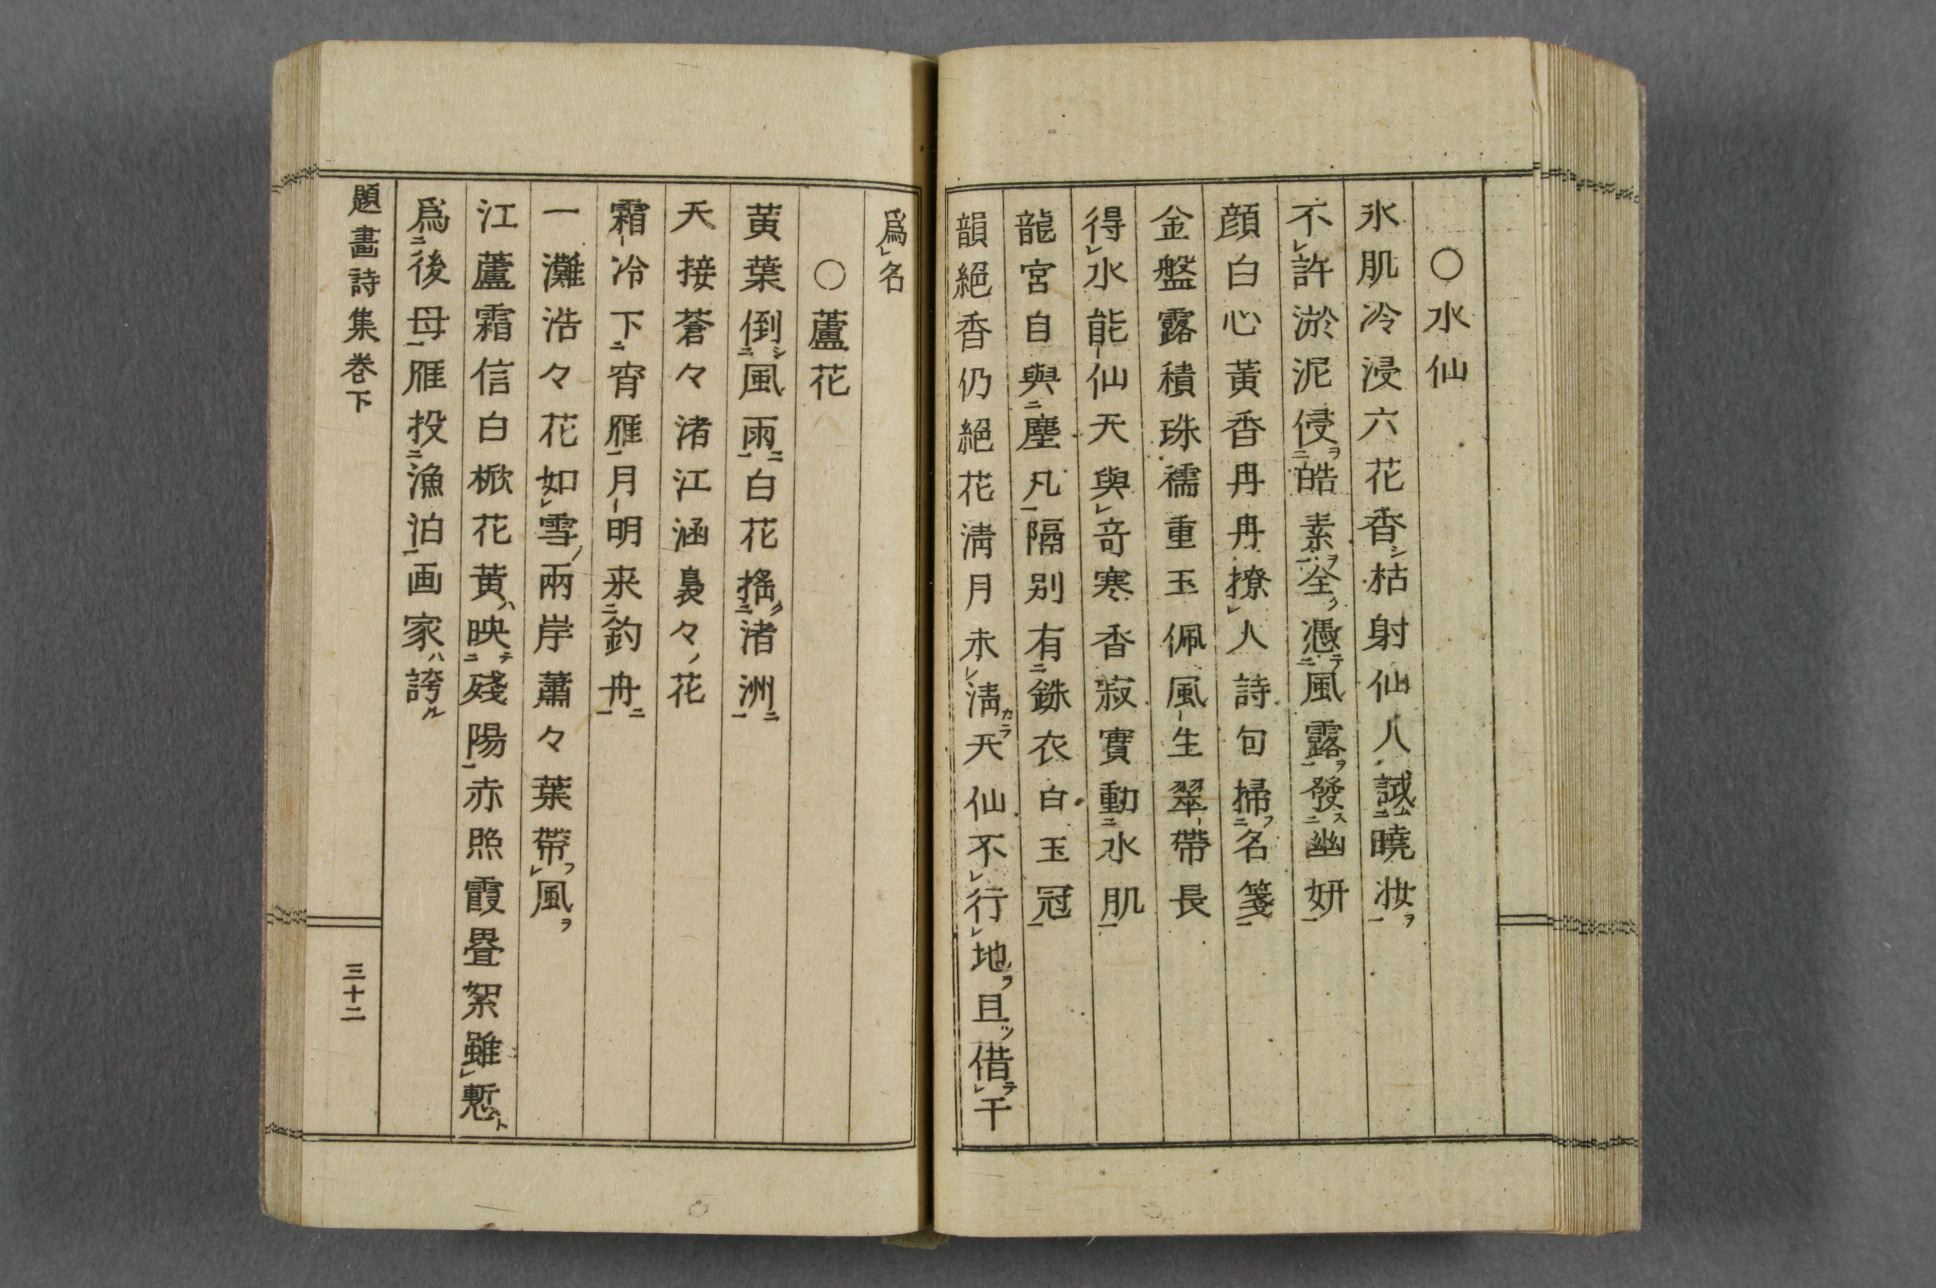 ○水仙
氷肌冷浸六花香枯射仙人試曉妝
不許淤泥侵皓素全憑風露發幽妍
顔白心黃香冉冉撩人詩句掃名箋
金盤露積珠襦重玉佩風生翠帶長
得水能仙天與竒寒香寂實動水肌
龍宮自與塵凡隔別有銖衣白玉冠
韻絕香仍絕花淸月未淸天仙不行地且借干
爲名
○蘆花
黃葉倒風雨白花搖渚洲
天接蒼々渚江涵裊々花
霜冷下宵雁月明来釣舟
一灘浩々花如雪兩岸蕭々葉帶風
江蘆霜信白楸花黃映殘陽赤照霞畳絮雖慙
爲後母雁投漁泊画家誇
題畵詩集巻下
三十二